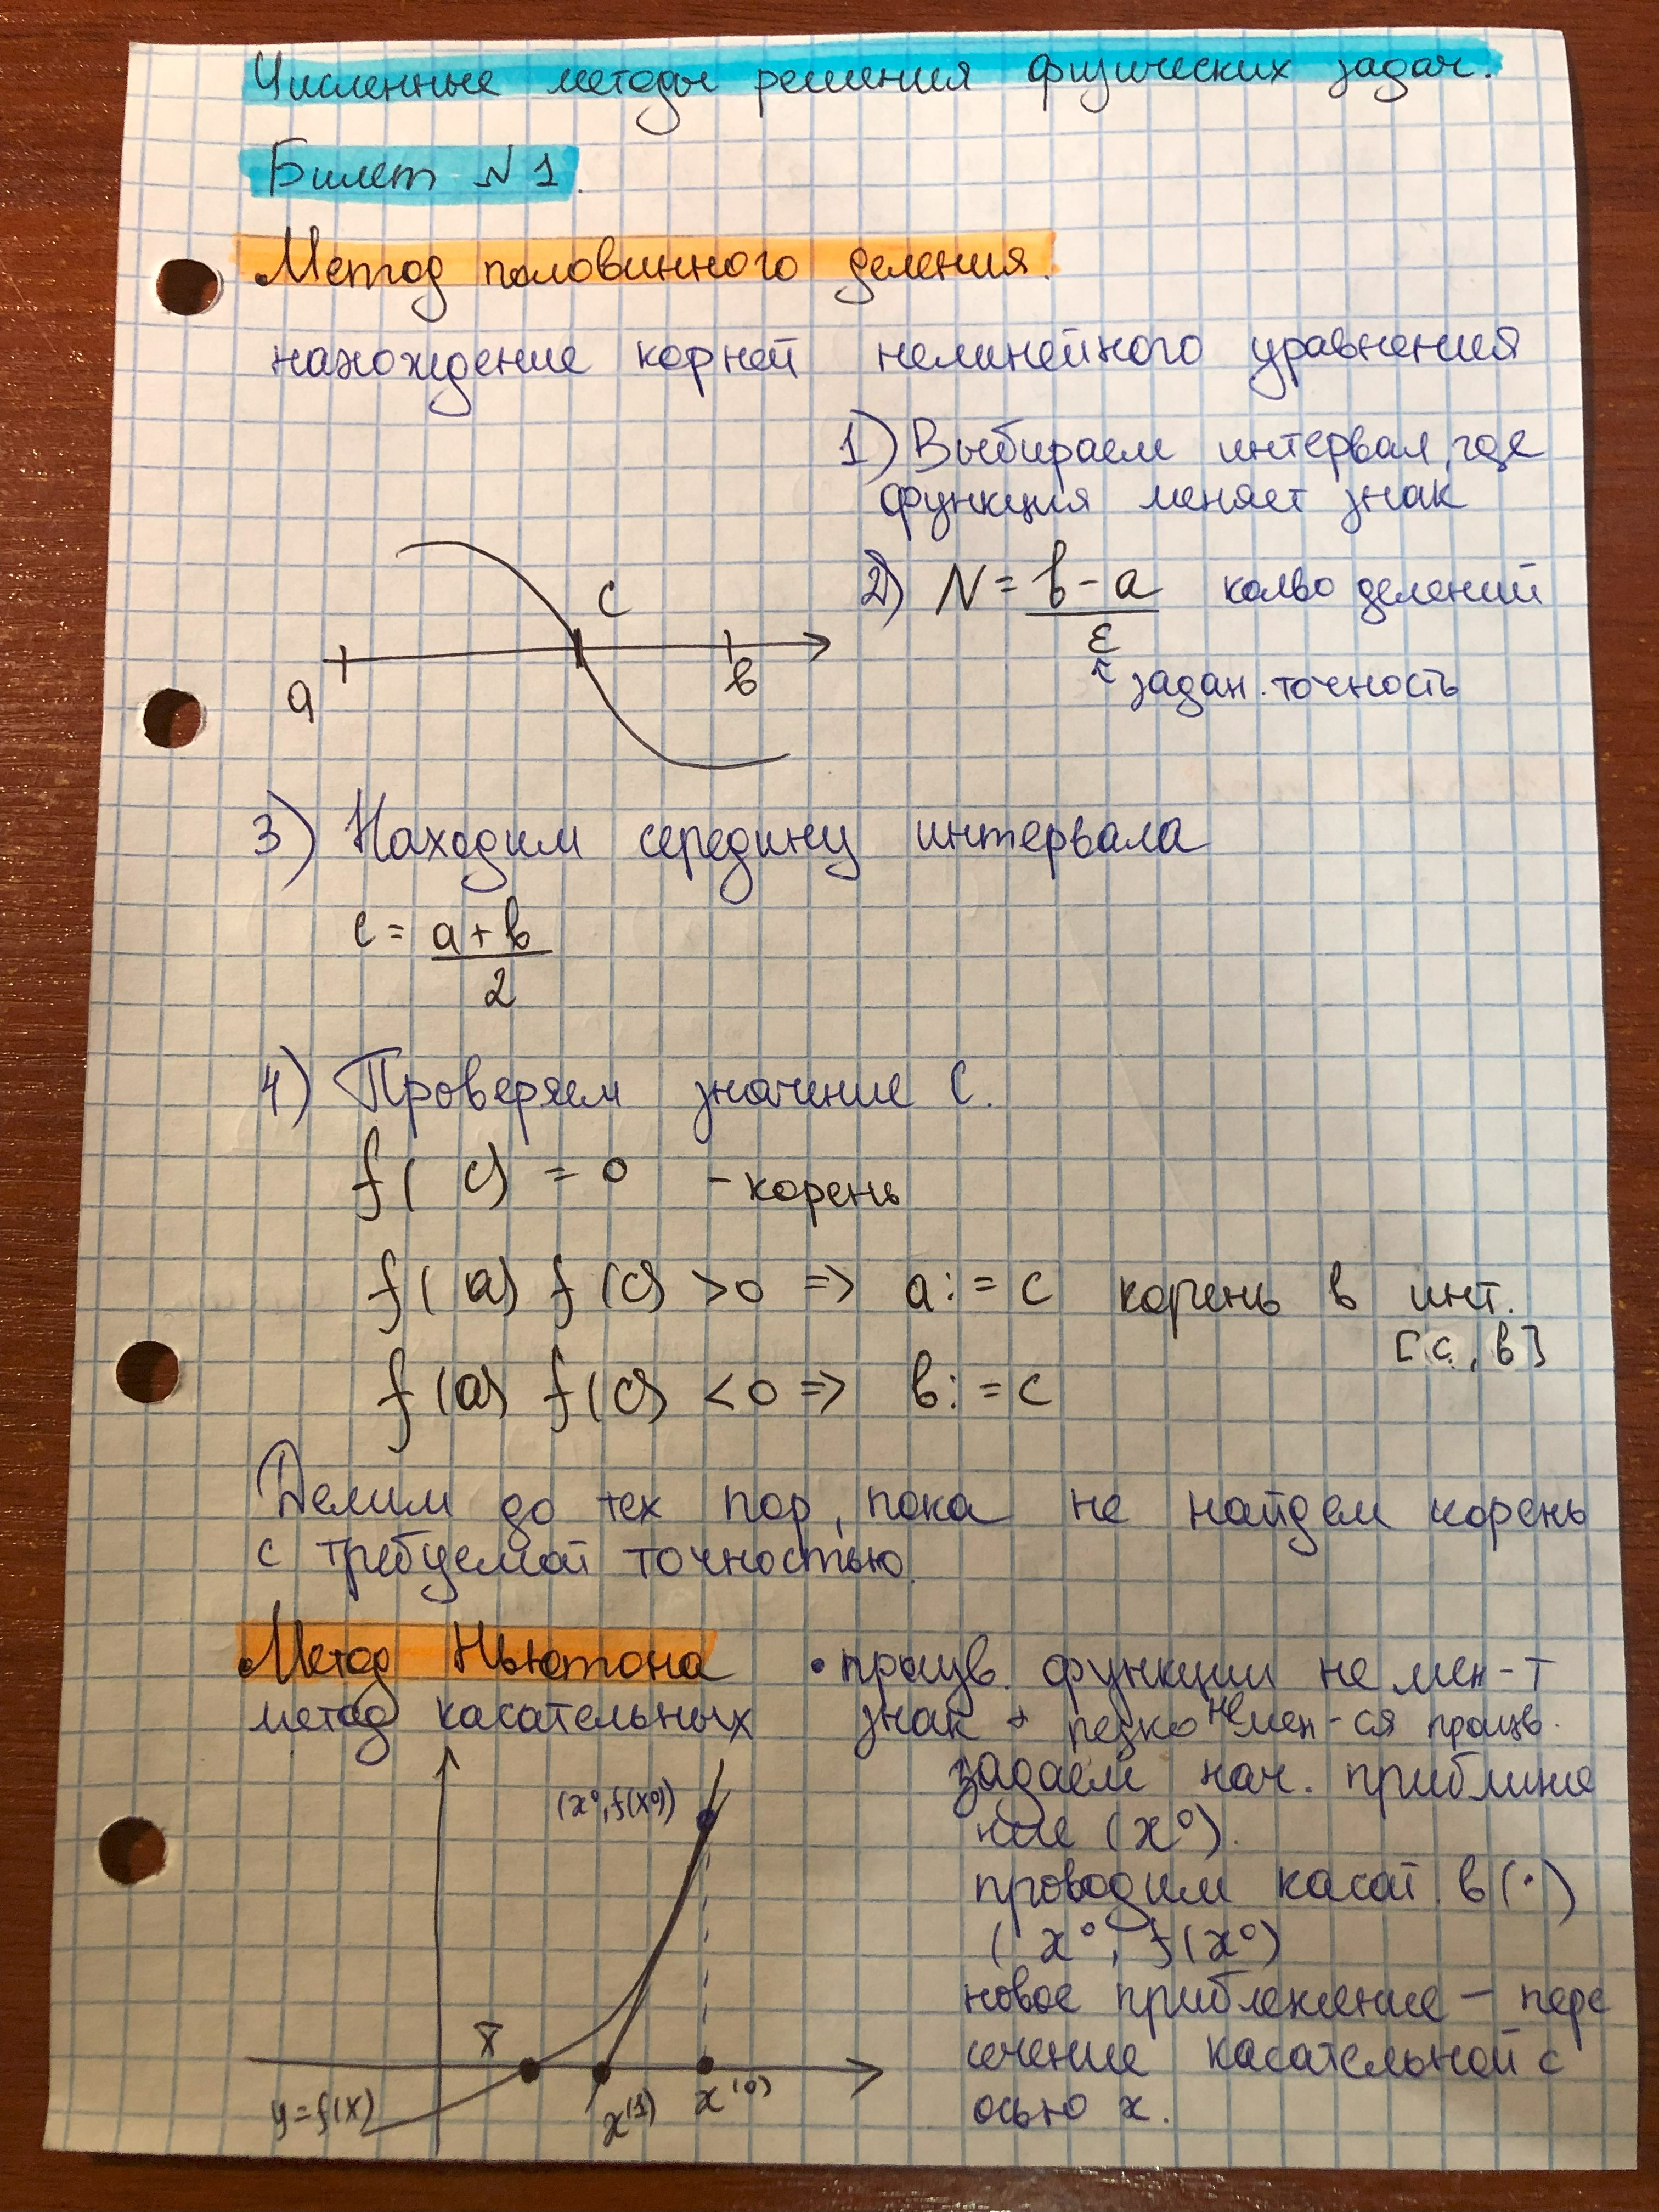 Численные методы решения физических задач.
Билет N 1.
Метод половинного деления.
нахождение корней нелинейного уравнения
1) Выбираем интервал, где
функция меняет знак
2) N = b - a / ε колво делений
↑ задан. точность
a c b
3) Находим середину интервала
c = a + b / 2
4) Проверяем значение C.
f( c) = 0 - корень
f( a) f (c) > 0 => a: = c корень в инт.
[c, b]
f (a) f(c) < 0 => b: = c
Делим до тех пор, пока не найдем корень
с требуемой точностью.
Метод Ньютона
метод касательных
• произв. функции не мен-т
знак + резко не мен-ся произв.
задаем нач. приближе
ние (x⁰).
проводим касат. в (·)
( x⁰, f(x⁰)
новое приближение — пере
сечение касательной с
осью x.
(x⁰, f(x⁰))
x̄
y = f(x)
x⁽¹⁾ x⁽⁰⁾